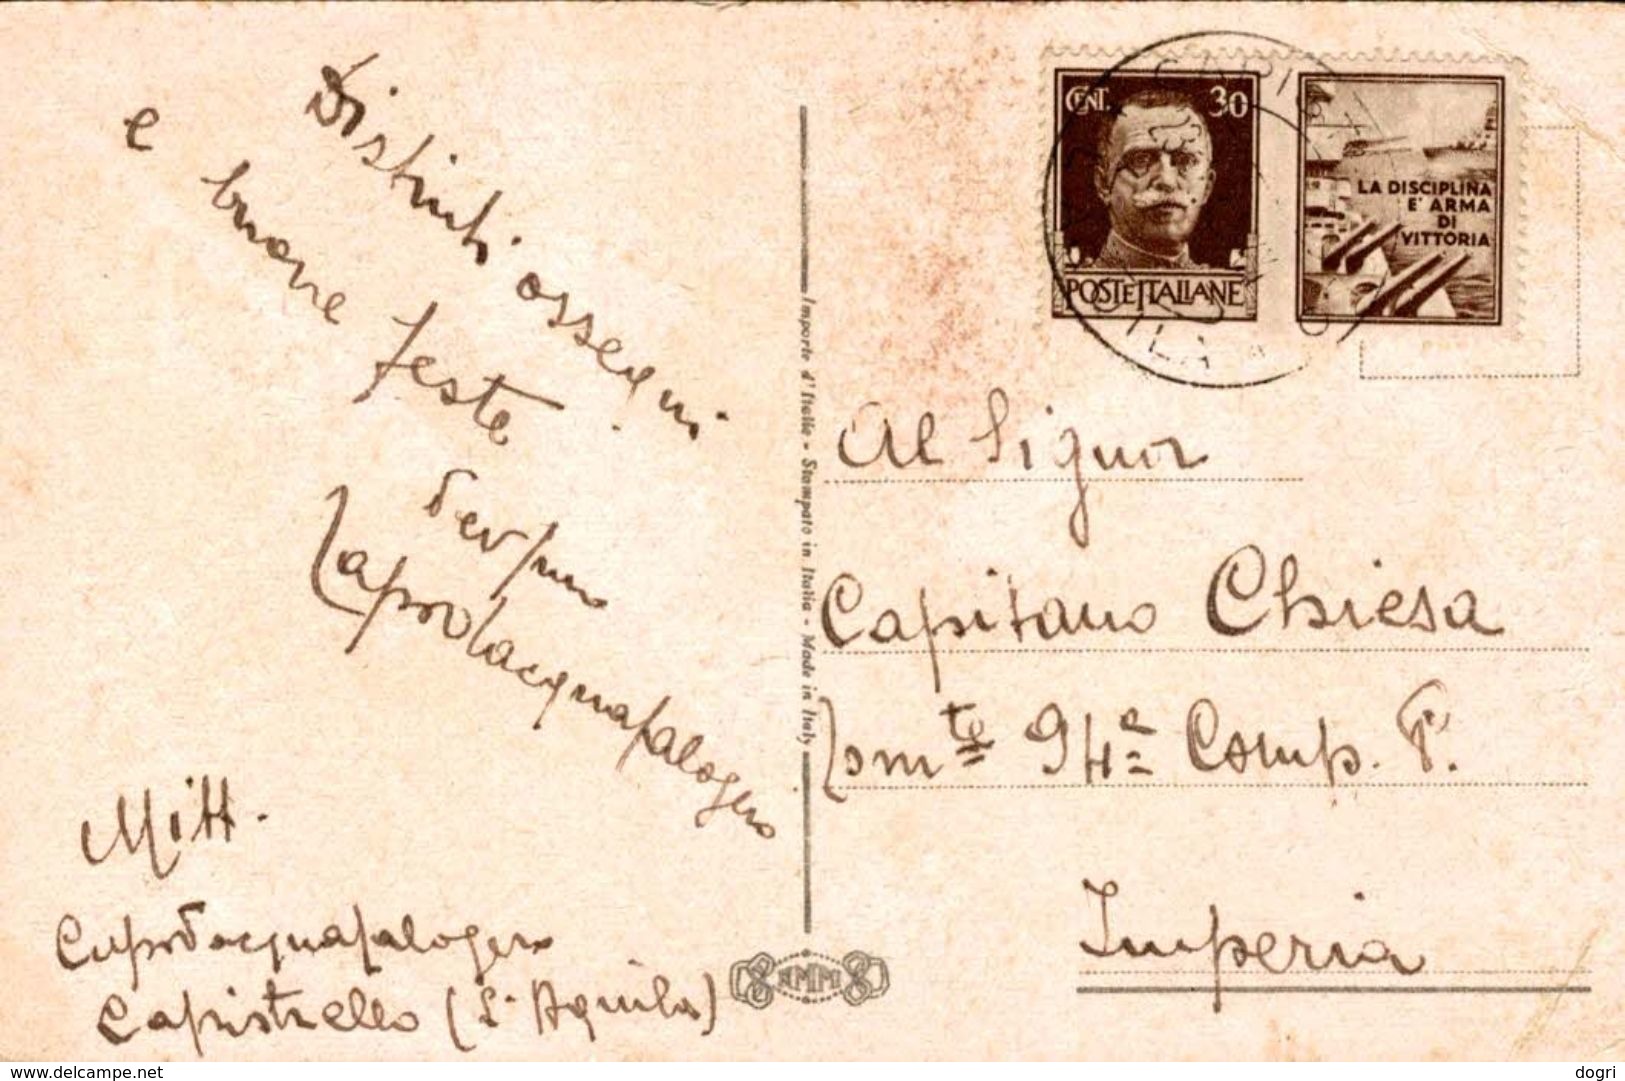 Distinti ossequi
e buone feste
Capodacquapalogero
Mitt.
Capodacquapalogero
Capistrello (L'Aquila)
Importe d'Italie - Stampato in Italia - Made in Italy
AMMI
CENT. 30
POSTE ITALIANE
LA DISCIPLINA
E' ARMA
DI
VITTORIA
Al Signor
Capitano Chiesa
94ª Comp. P.
Imperia
www.delcampe.net
dogri